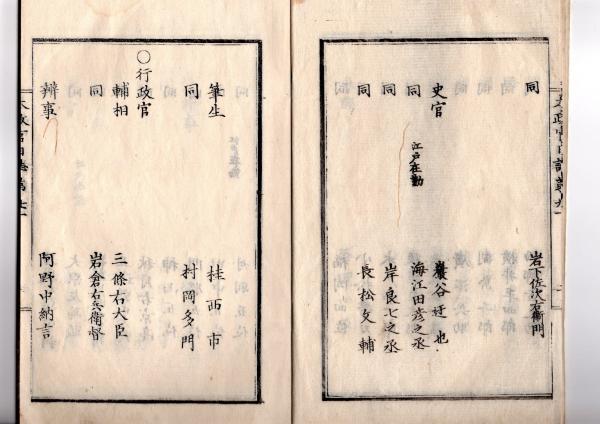 同 岩下佐次右衛門
史官 巖谷迂也
同 江戸在勤 海江田彦之丞
同 岸良七之丞
同 長松文輔
筆生 桂西市
同 村岡多門
○行政官
輔相 三條右大臣
同 岩倉右兵衛督
辨事 阿野中納言